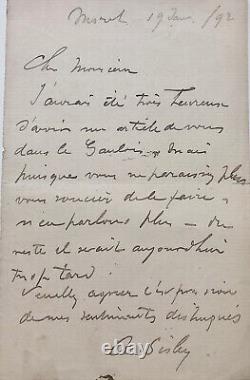 Moret 19 Janv. /92
Cher Monsieur
J'aurais été très heureux
d'avoir un article de vous
dans le Gaulois, mais
puisque vous ne paraissez plus
vous soucier de le faire
n'en parlons plus — du
reste il serait aujourd'hui
trop tard.
Veuillez agréer l'expression
de mes sentiments distingués
A. Sisley
© worthpoint